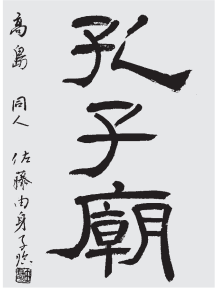 孔子廟
高島 同人 佐藤由身子臨